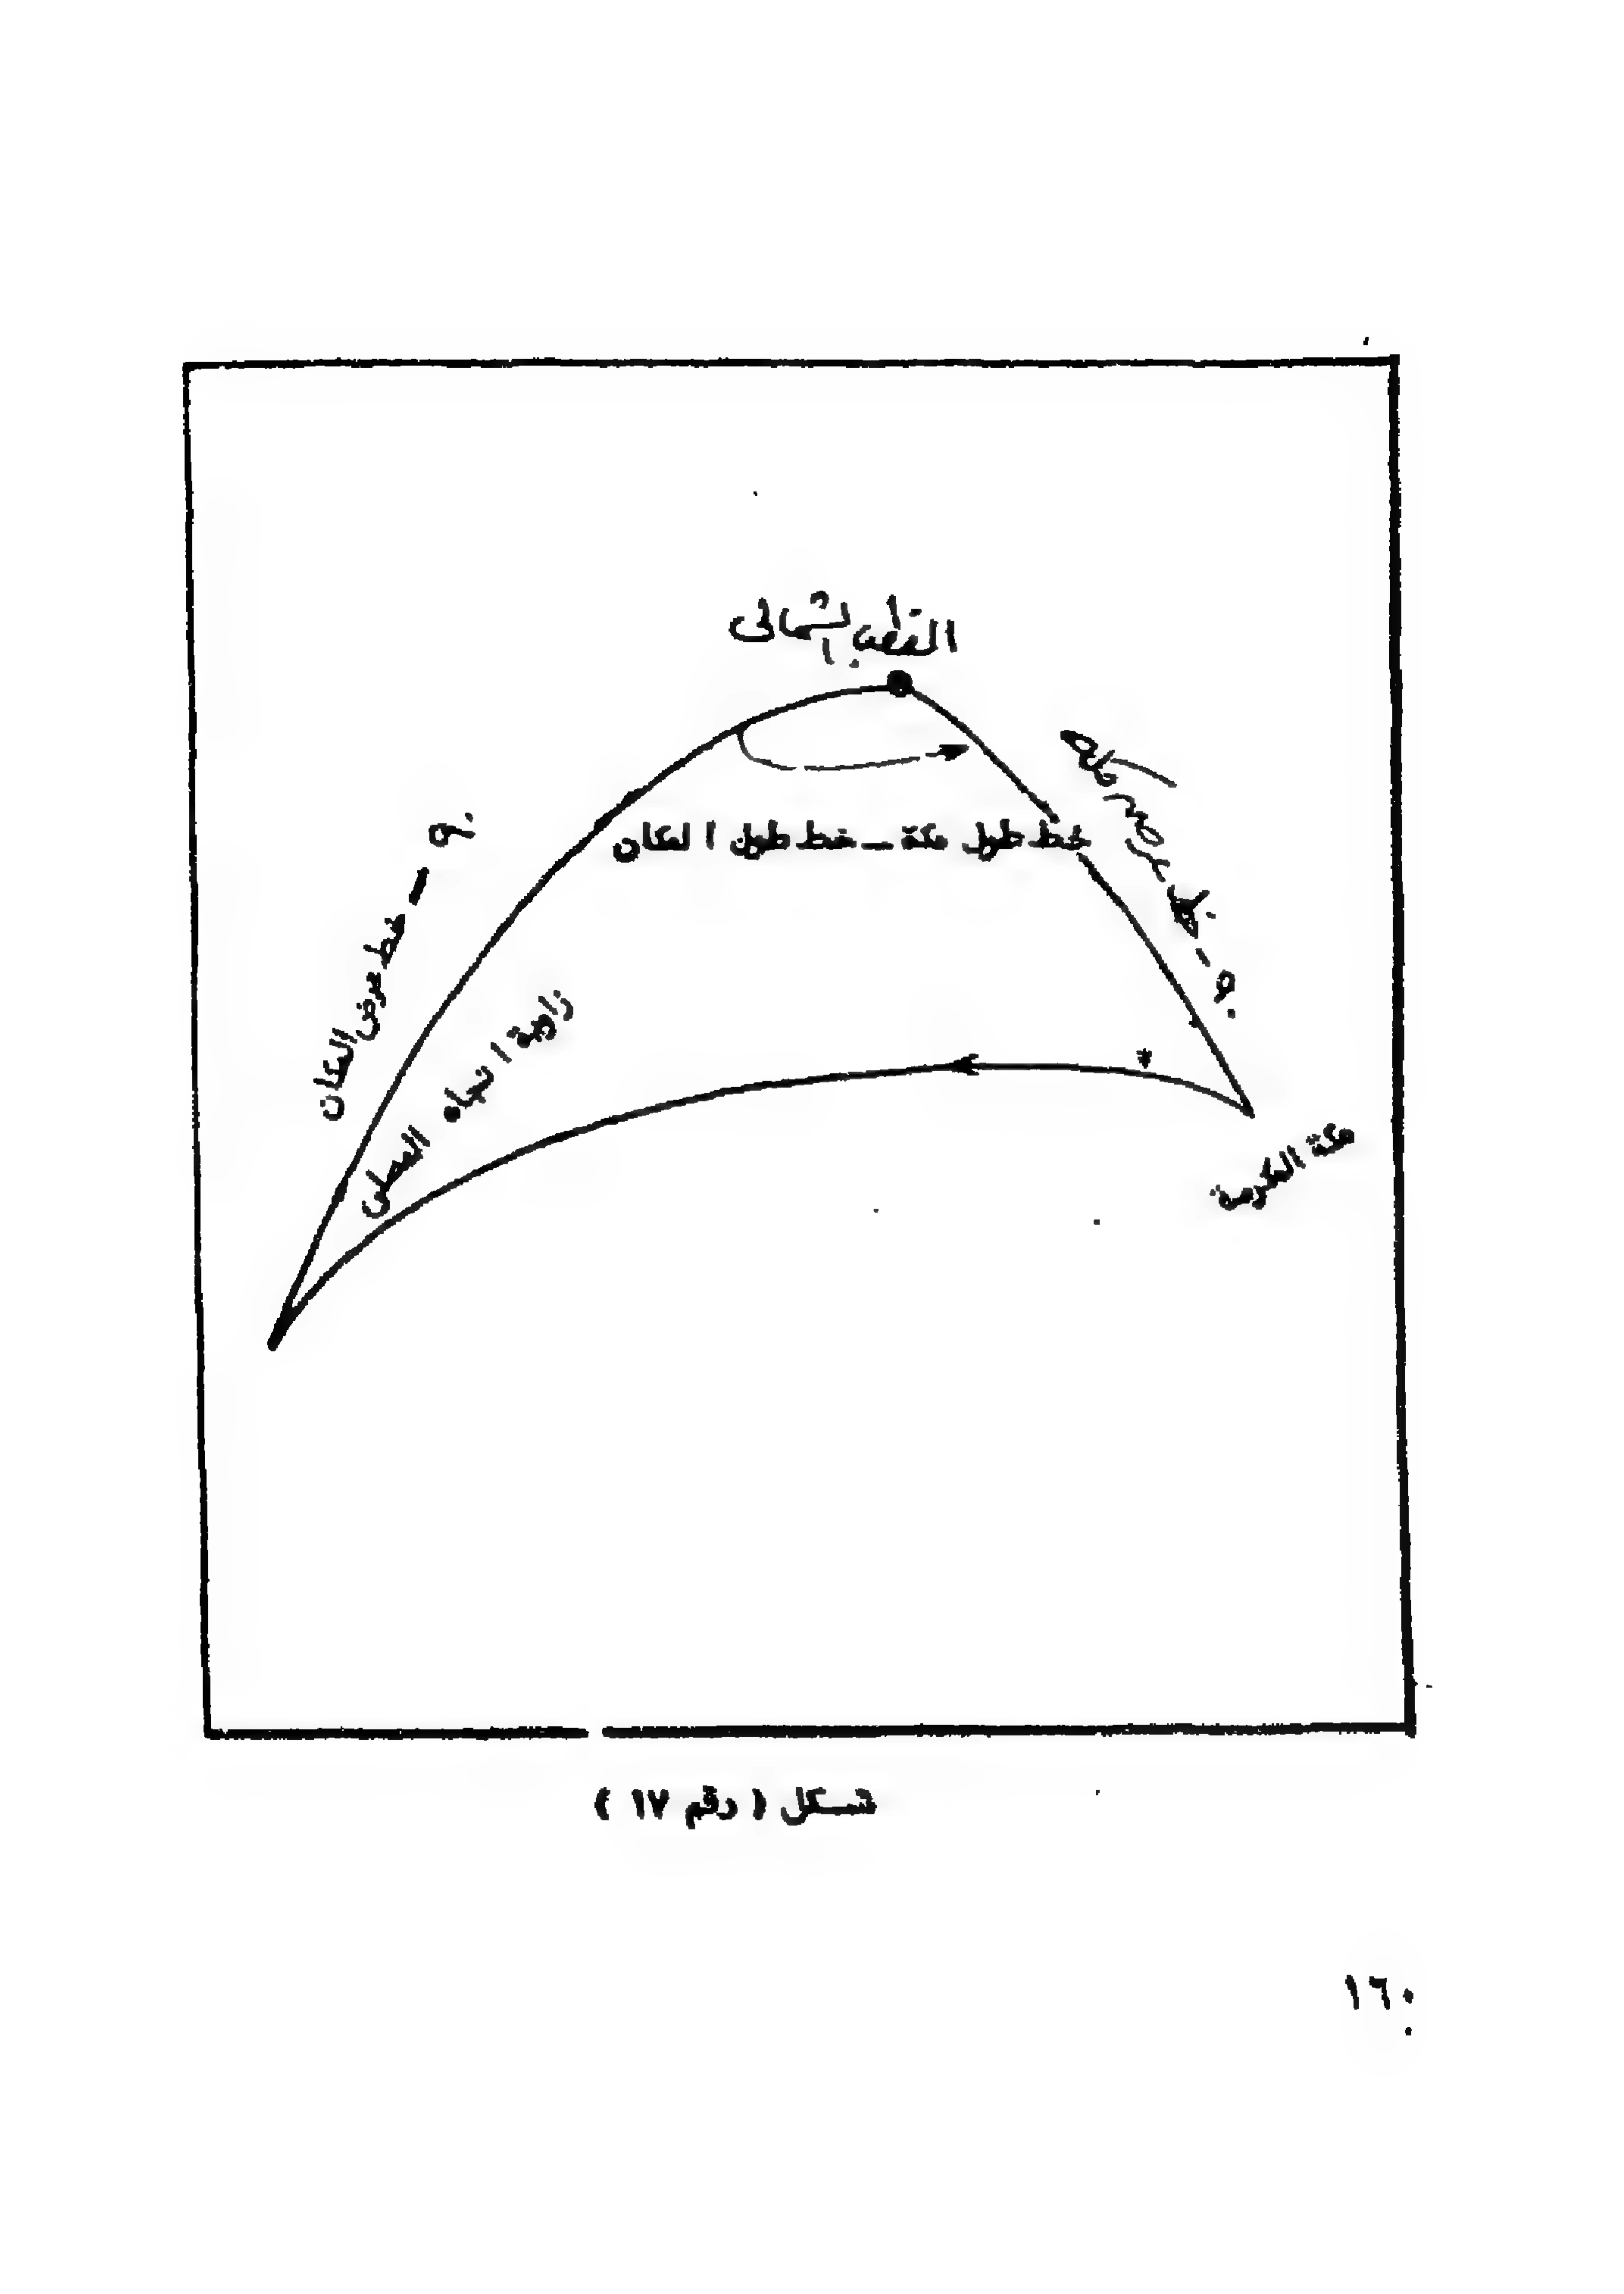 القطب الشمالى
٩٠ - خط عرض مكة
خط طول مكة - خط طول المكان
٩٠ - خط عرض المكان
زاوية اتجاه المصلى
*
مكة المكرمة
شكل ( رقم ١٧ )
١٦٠